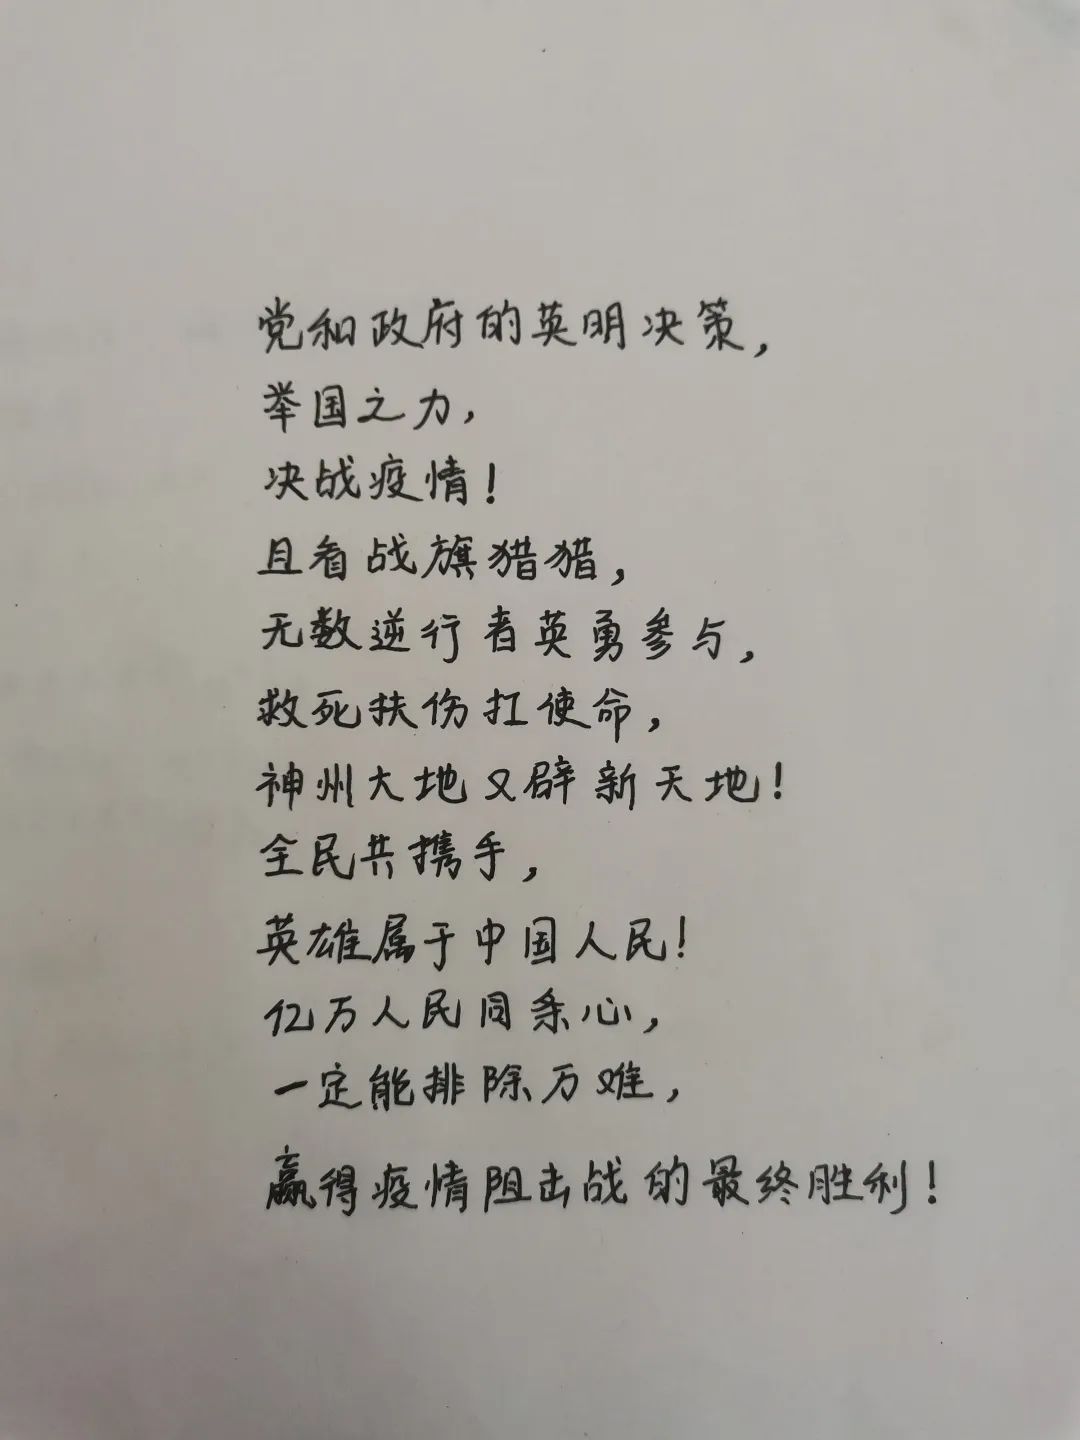 党和政府的英明决策，
举国之力，
决战疫情！
且看战旗猎猎，
无数逆行者英勇参与，
救死扶伤扛使命，
神州大地又辟新天地！
全民共携手，
英雄属于中国人民！
亿万人民同条心，
一定能排除万难，
赢得疫情阻击战的最终胜利！